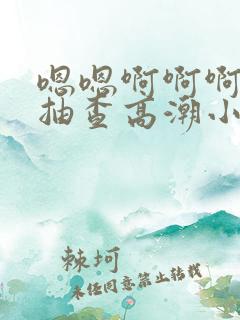 嗯嗯啊啊啊
抽查高潮小
棘坷
未经同意禁止转载